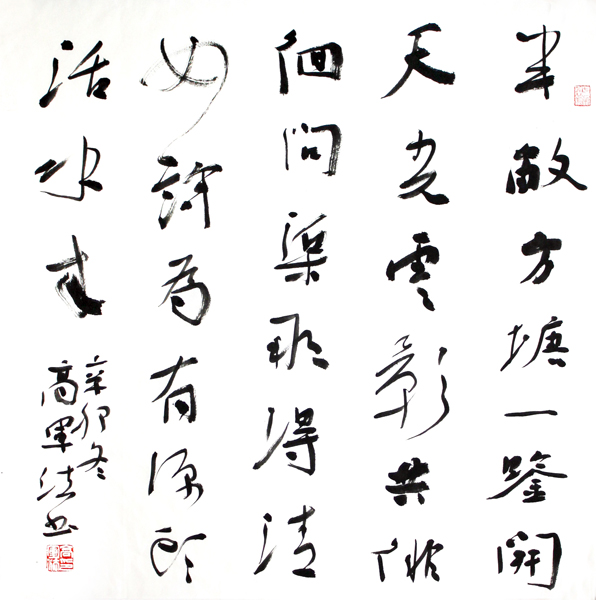 半畝方塘一鑒開
天光雲影共徘
徊問渠那得清
如許為有源頭
活水來
辛卯冬
高軍法书